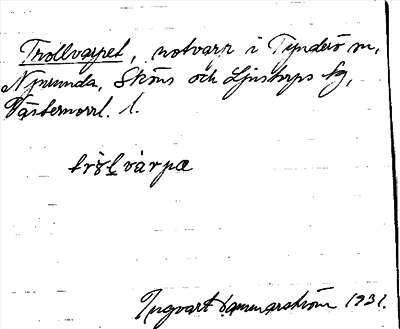 Trollvarpet, notvarp i Tynderö m,
Njurunda, Sköns och Ljustorps sg,
Västernorrl. l.
tròl̥ vàrpa
Ingvart Dammarström 1931.